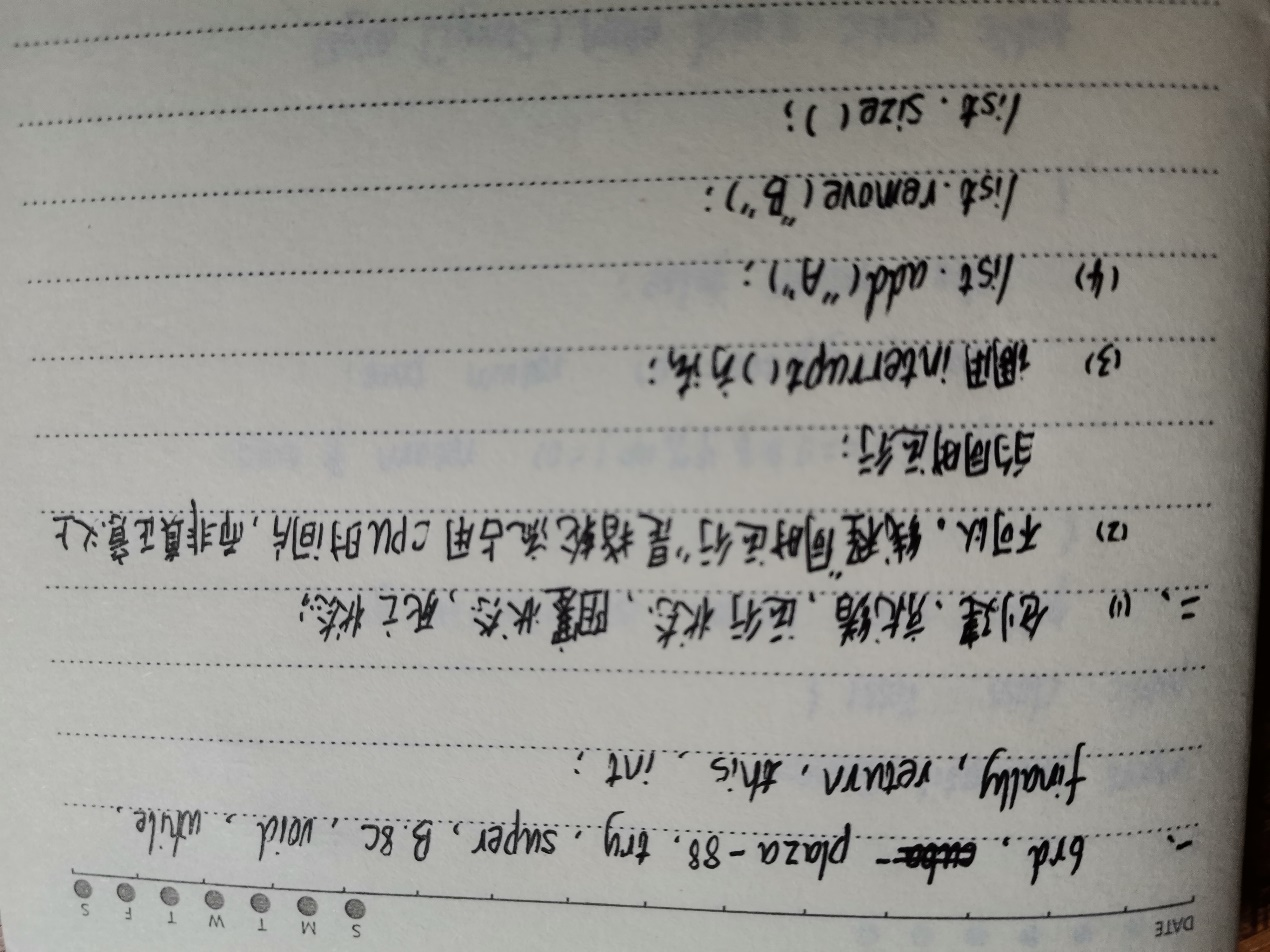 DATE
S M T W T F S
一、 6rd, plaza-88, try, super, B&C, void, while,
finally, return, this, int;
二、 (1) 创建、就绪, 运行状态, 阻塞状态, 死亡状态;
(2) 不可以。线程"同时运行"是指轮流占用CPU时间片,而非真正意义上
的同时运行;
(3) 调用interrupt()方法;
(4) list.add("A");
list.remove("B");
list.size();